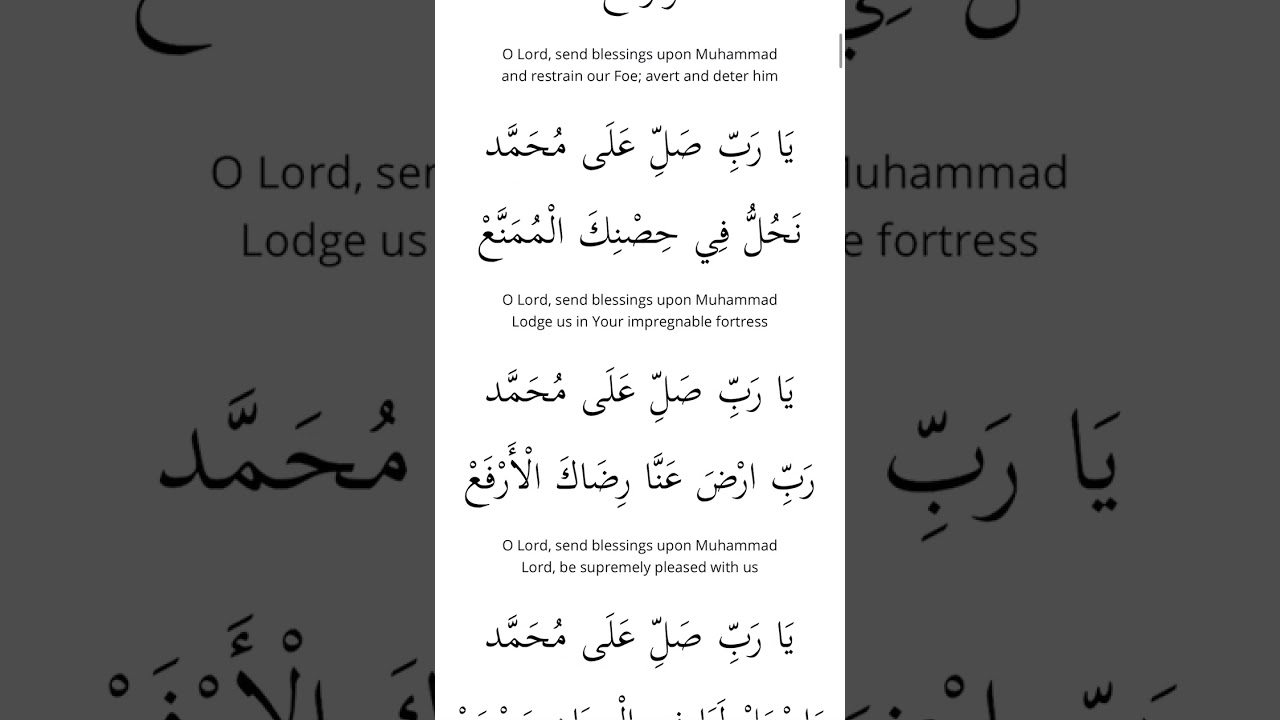 O Lord, send blessings upon Muhammad
and restrain our Foe; avert and deter him
يَا رَبِّ صَلِّ عَلَى مُحَمَّد
نَحُلُّ فِي حِصْنِكَ الْمُمَنَّعْ
O Lord, send blessings upon Muhammad
Lodge us in Your impregnable fortress
يَا رَبِّ صَلِّ عَلَى مُحَمَّد
رَبِّ ارْضَ عَنَّا رِضَاكَ الْأَرْفَعْ
O Lord, send blessings upon Muhammad
Lord, be supremely pleased with us
يَا رَبِّ صَلِّ عَلَى مُحَمَّد